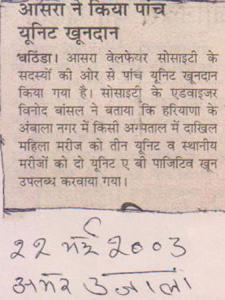 आसरा ने किया पांच
यूनिट खूनदान
बठिंडा। आसरा वेलफेयर सोसाइटी के
सदस्यों की ओर से पांच यूनिट खूनदान
किया गया है। सोसाइटी के एडवाइजर
विनोद बांसल ने बताया कि हरियाणा के
अंबाला नगर में किसी अस्पताल में दाखिल
महिला मरीज को तीन यूनिट व स्थानीय
मरीजों को दो यूनिट ए बी पाजिटिव खून
उपलब्ध करवाया गया।
22 मई 2003
अमर उजाला